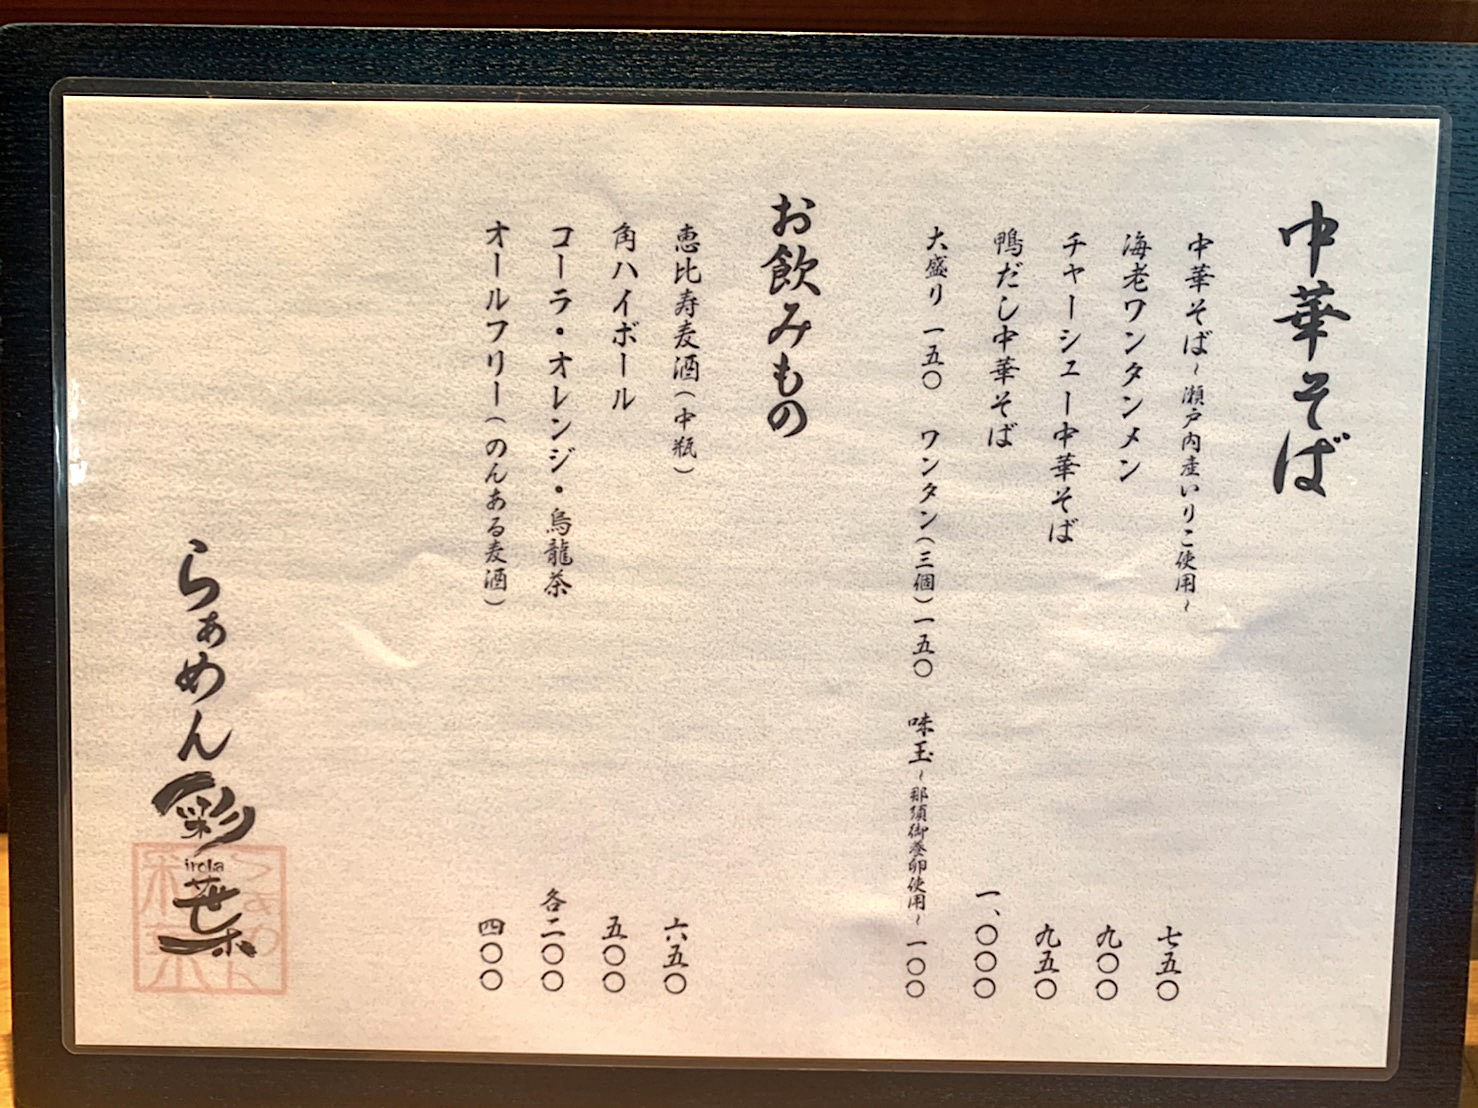 中華そば
中華そば~瀬戸内産いりこ使用~ 七五〇
海老ワンタンメン 九〇〇
チャーシュー中華そば 九五〇
鴨だし中華そば 一、〇〇〇
大盛り 一五〇 ワンタン(三個)一五〇 味玉~那須御養卵使用~ 一〇〇
お飲みもの
恵比寿麦酒(中瓶) 六五〇
角ハイボール 五〇〇
コーラ・オレンジ・烏龍茶 各二〇〇
オールフリー(のんある麦酒) 四〇〇
らぁめん 彩葉
iroha